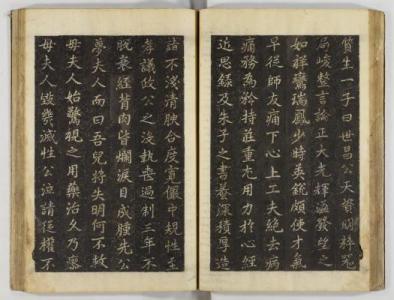 生一子曰世昌公天資剛粹
局峻整言論正大光輝溢發望之
如祥鸞瑞鳳少時英銳頗使才氣
早從師友痛下心上工夫絶去病
痛務為矜持莊重尤用力於心經
近思錄及朱子之書養深積厚造
詣不淺清合度寬儼中規性至
孝議政公之沒執喪過制三年不
脫衰絰膚肉皆爛淚目成腫先公
夢夫人而曰吾兒將失明何不救
母夫人始驚視之用藥治久乃愈
母夫人毀幾滅性公泣請從權不